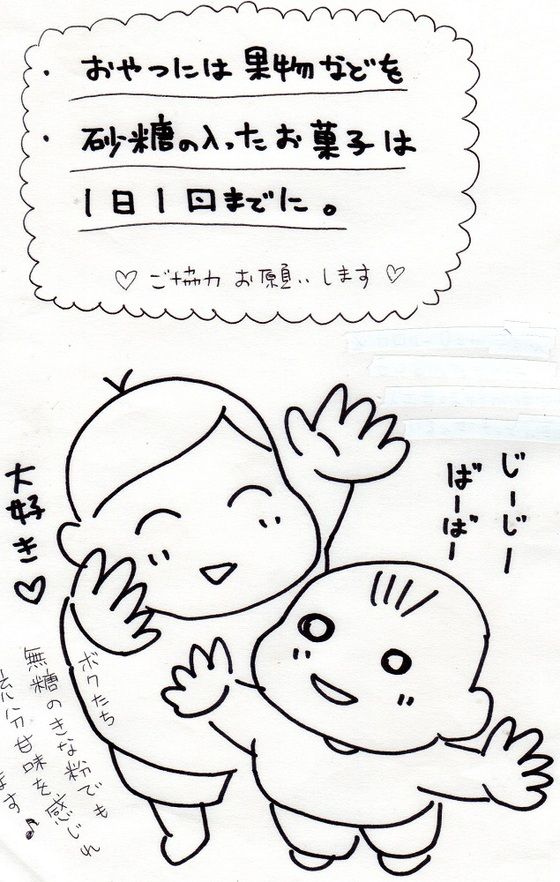 ・おやつには果物などを
・砂糖の入ったお菓子は
1日1回までに。
♡ご協力お願いします♡
じーじー
ばーばー
大好き♡
ボクたち
無糖のきな粉でも
充分甘味を感じれ
ます♪